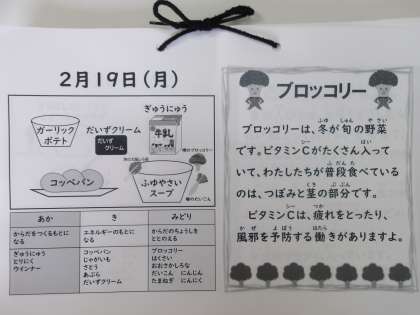 2月19日（月）
ぎゅうにゅう
ガーリック
ポテト
だいずクリーム
だいず
クリーム
牛乳
コッペパン
ふゆやさい
スープ
あか
き
みどり
からだをつくるもとに
なる
エネルギーのもとに
なる
からだのちょうしを
ととのえる
ぎゅうにゅう
とりにく
ウインナー
コッペパン
じゃがいも
さとう
あぶら
だいずクリーム
ブロッコリー
はくさい
おおさかしろな
だいこん　にんじん
たまねぎ　にんにく
ブロッコリー
ブロッコリーは、冬が旬の野菜
です。ビタミンCがたくさん入って
いて、わたしたちが普段食べている
のは、つぼみと茎の部分です。
ビタミンCは、疲れをとったり、
風邪を予防する働きがありますよ。